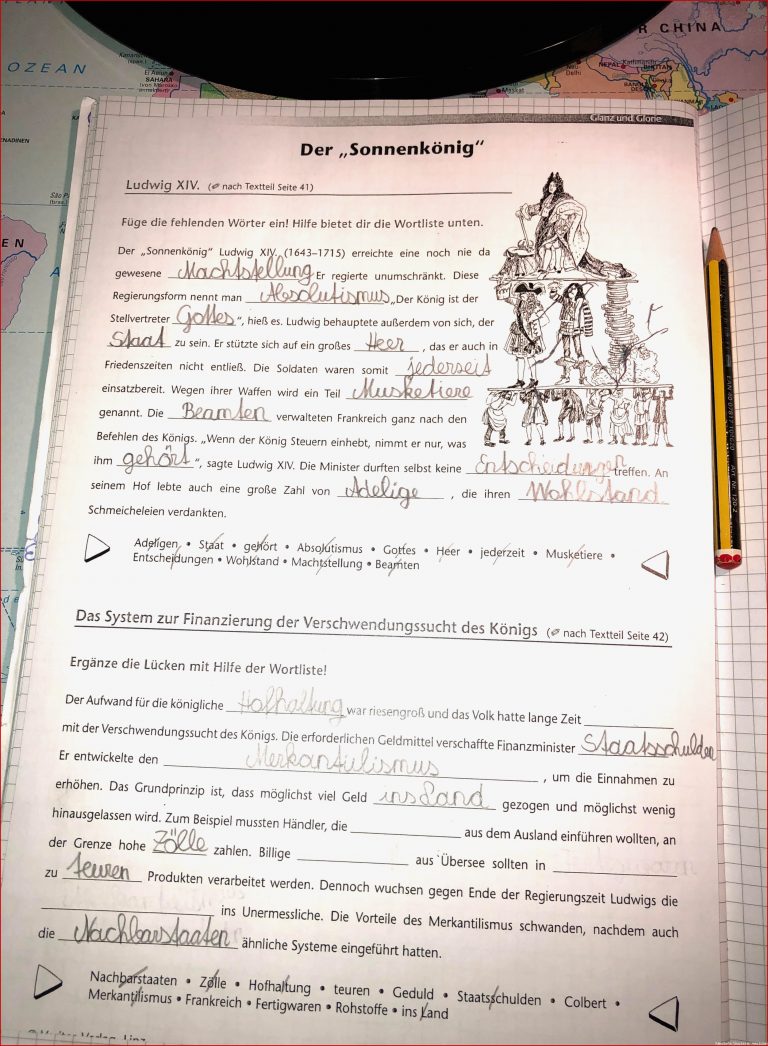 OZEAN
R CHINA
NEPAL
Kathmandu
BHUTAN
Neu-
Delhi
El Aaiún
SAHARA
(von Marokko
annektiert)
Maskat
EN
Glanz und Glorie
Der „Sonnenkönig“
Ludwig XIV. (nach Textteil Seite 41)
Füge die fehlenden Wörter ein! Hilfe bietet dir die Wortliste unten.
Der „Sonnenkönig“ Ludwig XIV. (1643–1715) erreichte eine noch nie da
gewesene Machtstellung Er regierte unumschränkt. Diese
Regierungsform nennt man Absolutismus „Der König ist der
Stellvertreter Gottes“, hieß es. Ludwig behauptete außerdem von sich, der
Staat zu sein. Er stützte sich auf ein großes Heer, das er auch in
Friedenszeiten nicht entließ. Die Soldaten waren somit jederseit
einsatzbereit. Wegen ihrer Waffen wird ein Teil Musketiere
genannt. Die Beamten verwalteten Frankreich ganz nach den
Befehlen des Königs. „Wenn der König Steuern einhebt, nimmt er nur, was
ihm gehört“, sagte Ludwig XIV. Die Minister durften selbst keine Entscheidungen treffen. An
seinem Hof lebte auch eine große Zahl von Adelige, die ihren Wohlstand
Schmeicheleien verdankten.
Adeligen • Staat • gehört • Absolutismus • Gottes • Heer • jederzeit • Musketiere •
Entscheidungen • Wohlstand • Machtstellung • Beamten
Das System zur Finanzierung der Verschwendungssucht des Königs (nach Textteil Seite 42)
Ergänze die Lücken mit Hilfe der Wortliste!
Der Aufwand für die königliche Hofhaltung war riesengroß und das Volk hatte lange Zeit
mit der Verschwendungssucht des Königs. Die erforderlichen Geldmittel verschaffte Finanzminister Staatsschulden
Er entwickelte den Merkantulismus, um die Einnahmen zu
erhöhen. Das Grundprinzip ist, dass möglichst viel Geld ins Land gezogen und möglichst wenig
hinausgelassen wird. Zum Beispiel mussten Händler, die aus dem Ausland einführen wollten, an
der Grenze hohe Zölle zahlen. Billige aus Übersee sollten in
zu teuren Produkten verarbeitet werden. Dennoch wuchsen gegen Ende der Regierungszeit Ludwigs die
ins Unermessliche. Die Vorteile des Merkantilismus schwanden, nachdem auch
die Nachbarstaaten ähnliche Systeme eingeführt hatten.
Nachbarstaaten • Zölle • Hofhaltung • teuren • Geduld • Staatsschulden • Colbert •
Merkantilismus • Frankreich • Fertigwaren • Rohstoffe • ins Land